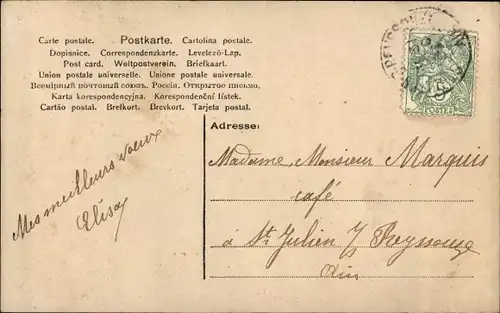 Carte postale. Postkarte. Cartolina postale.
Dopisnice. Correspondenzkarte. Levelező-Lap.
Post card. Weltpostverein. Briefkaart.
Union postale universelle. Unione postale universale.
Всемірный почтовый союзъ. Россія. Открытое письмо.
Karta korespondencyjna. Korespondenční lístek.
Cartão postal. Brefkort. Brevkort. Tarjeta postal.
5
POSTES
Adresse:
Madame, Monsieur Marquis
café
à St Julien s/ Reyssouze
Ain
Mes meilleurs vœux
Elisa